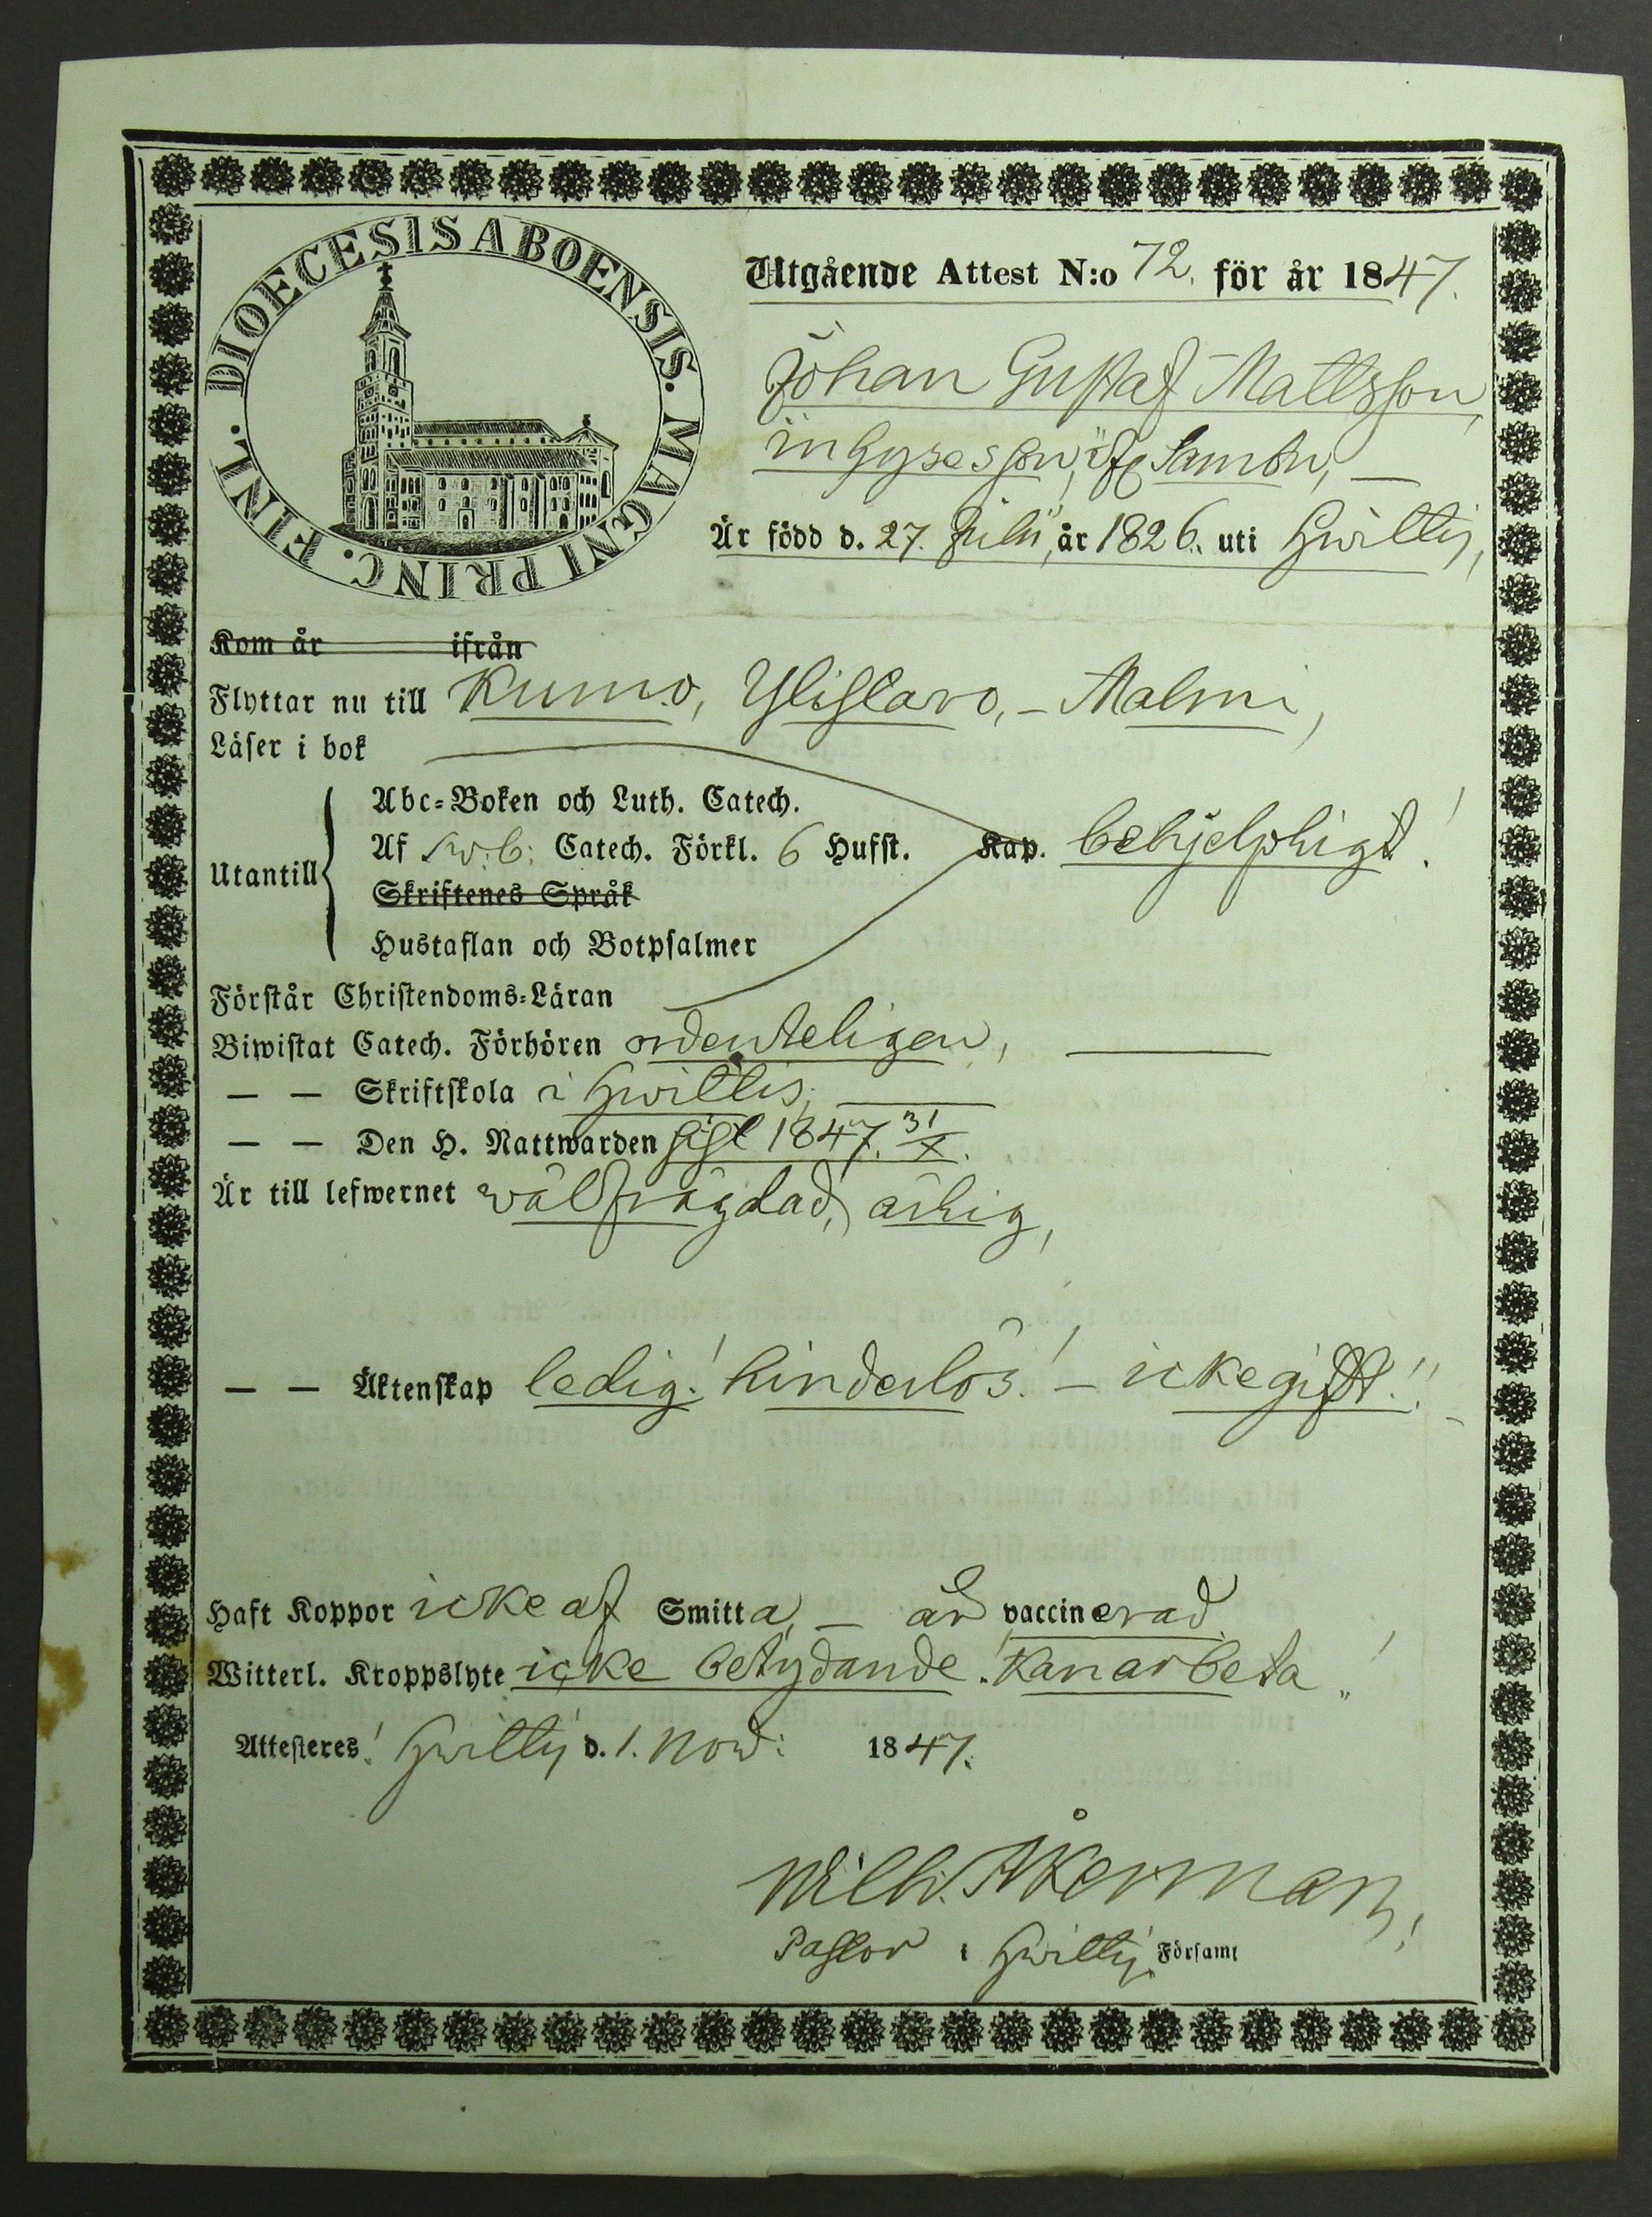 DIOECESIS ABOENSIS. MAGNI PRINC. FINL.
Utgående Attest N:o 72. för år 1847.
Johan Gustaf Mattsson,
Är född d. 27. Julii, år 1826. uti Hwittis,
Kom år ifrån
Flyttar nu till Kumo, Ylistaro, - Malmi,
Läser i bok
Abc-Boken och Luth. Catech.
Utantill Af Sw:b: Catech. Förkl. 6 Hufst. Kap. behjelpligt!
Skriftenes Språk
Hustaflan och Botpsalmer
Förstår Christendoms-Läran
Biwistat Catech. Förhören ordenteligen,
— — Skriftskola i Hwittis,
— — Den H. Nattwarden sist 1847. 31/X.
Är till lefwernet wälfrägdad, ärlig,
— — Äktenskap ledig! hinderlös! - icke gift!!
Haft Koppor icke af Smitta, - är vaccinerad.
Witterl. Kroppslyte icke betydande! Kan arbeta!
Attesteres! Hwittis d. 1. Nov: 1847.
Wilh. Åkerman,!
Pastor i Hwittis Församl